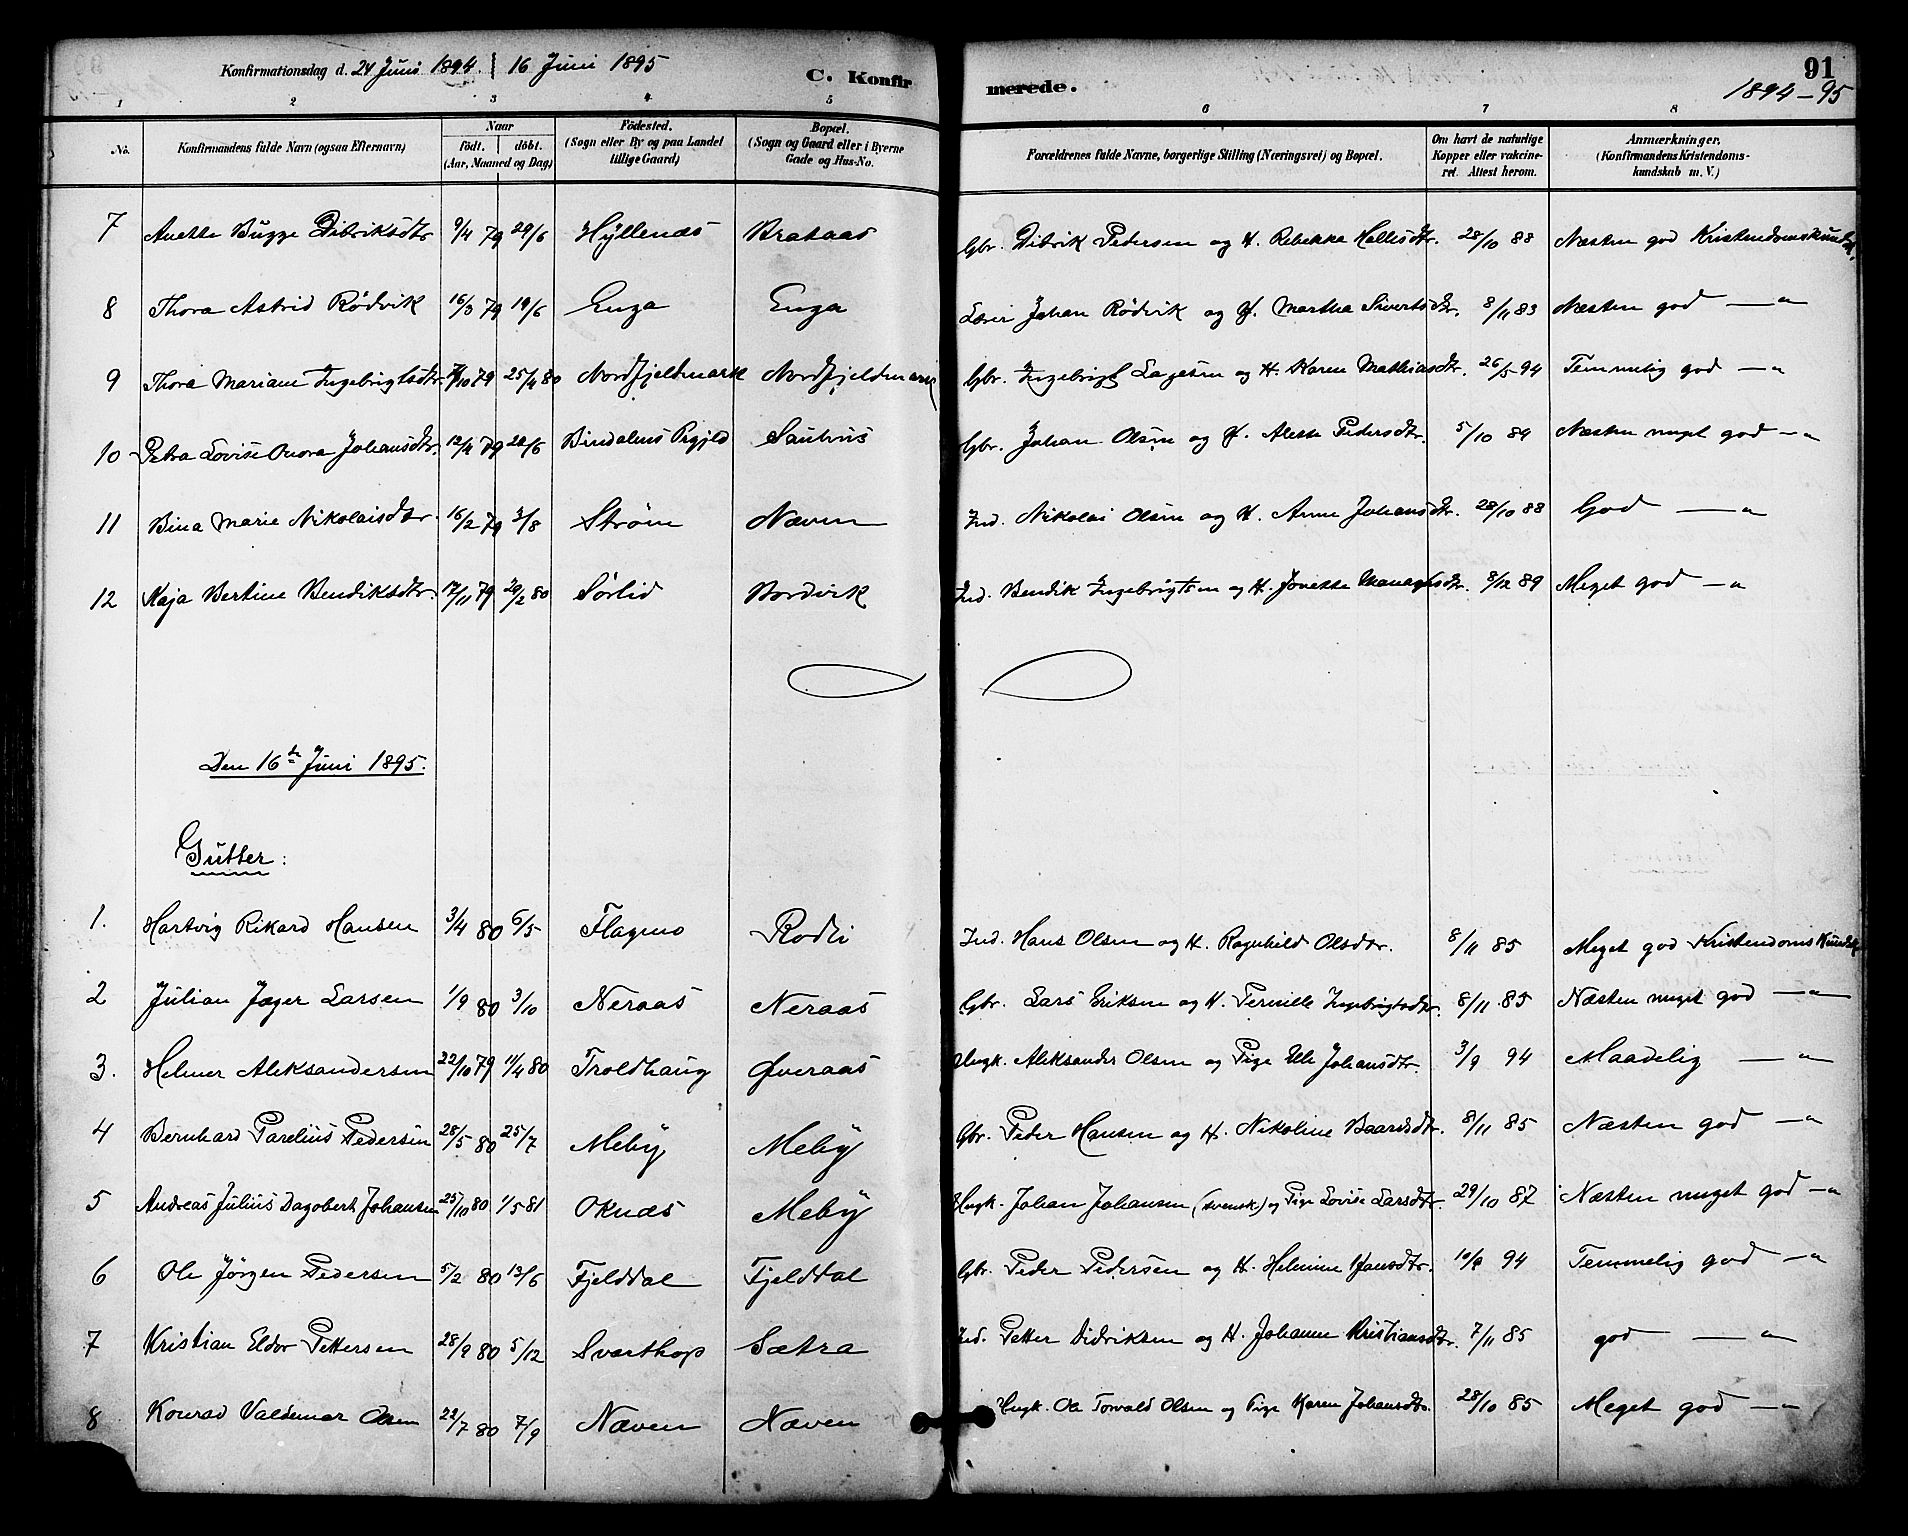 Konfirmationsdag d. 24 Juni 1894. | 16 Juni 1895 C. Konfirmerede. 91
1894–95
1 2 3 4 5 6 7 8
No. Konfirmandens fulde Navn (ogsaa Efternavn) Naar födt. döbt. (Aar, Maaned og Dag) Födested. (Sogn eller By og paa Landet tillige Gaard) Bopæl. (Sogn og Gaard eller i Byerne Gade og Hus-No. Forældrenes fulde Navne, borgerlige Stilling (Næringsvei) og Bopæl. Om havt de naturlige Kopper eller vakcineret. Attest herom. Anmærkninger. (Konfirmandens Kristendomskundskab m. V.)
7 Anette Bugge Didriksdtr 9/4 79 29/6 Hyllenæs Brataas Gbr. Didrik Pedersen og H. Rebekka Hallesdtr. 28/10 88 Næsten god Kristendomskundsk.
8 Thora Astrid Rødvik 16/3 79 19/6 Enga Enga Lærer Johan Rødvik og H. Martha Sivertsdtr. 8/11 83 Næsten god — "
9 Thora Mariane Ingebrigtsdtr. /10 79 25/4 80 Nordfjeldmark Nordfjeldmark Gbr. Ingebrigt Lagesen og H. Karen Mathiasdtr. 26/5 94 Temmelig god — "
10 Petra Lovise Onora Johansdtr. 12/4 79 22/6 Bindalens Prgjld Sauhus Gbr. Johan Olsen og H. Alette Pedersdtr. 5/10 89 Næsten meget god — "
11 Bina Marie Nikolaisdtr. 16/2 79 3/8 Strøm Næven Ind. Nikolai Olsen og H. Anne Johansdtr. 28/10 88 God — "
12 Kaja Bertine Bendiksdtr. 17/11 79 29/2 80 Sørlid Bordvik Ind. Bendik Ingebrigtsen og H. Jonette 8/12 89 Meget god — "
Den 16de Juni 1895.
Gutter:
1. Hartvig Rikard Hansen 3/4 80 6/5 Flagmo Rodli Ind. Hans Olsen og H. Ragnhild Olsdtr. 8/11 85 Meget god Kristendoms Kundsk
2 Julian Jæger Larsen 1/9 80 3/10 Neraas Neraas Gbr. Lars Eriksen og H. Pernille Ingebrigtsdtr. 8/11 85 Næsten meget god — " —
3. Helmer Aleksandersen 22/10 79 11/4 80 Troldhaug Øveraas Ungk. Aleksander Olsen og Pige Elle Johansdtr. 3/9 94 Maadelig — "
4 Bernhard Parelius Pedersen 28/5 80 25/7 Meby Meby Gbr. Peder Hansen og H. Nikoline Baardsdtr. 8/11 85 Næsten god — "
5 Andreas Julius Dagobert Johansen 25/10 80 1/5 81 Oknæs Meby Ungk. Johan Johansen (svensk) og Pige Lovise Larsdtr. 29/10 87 Næsten meget god — "
6 Ole Jörgen Pedersen 5/2 80 13/6 Fjelddal Fjelddal Gbr. Peder Pedersen og H. Helmine Hansdtr. 94 Temmelig god — "
7 Kristian Eldor Pettersen 28/9 80 5/12 Svarthop Sætra Ind. Petter Didriksen og H. Johanne Kristiansdtr. 7/11 85 god — "
8 Konrad Valdemar Olsen 22/7 80 7/9 Næven Næven Ungk. Ole Torvald Olsen og Pige Karen Johansdtr. 28/10 85 Meget god — "